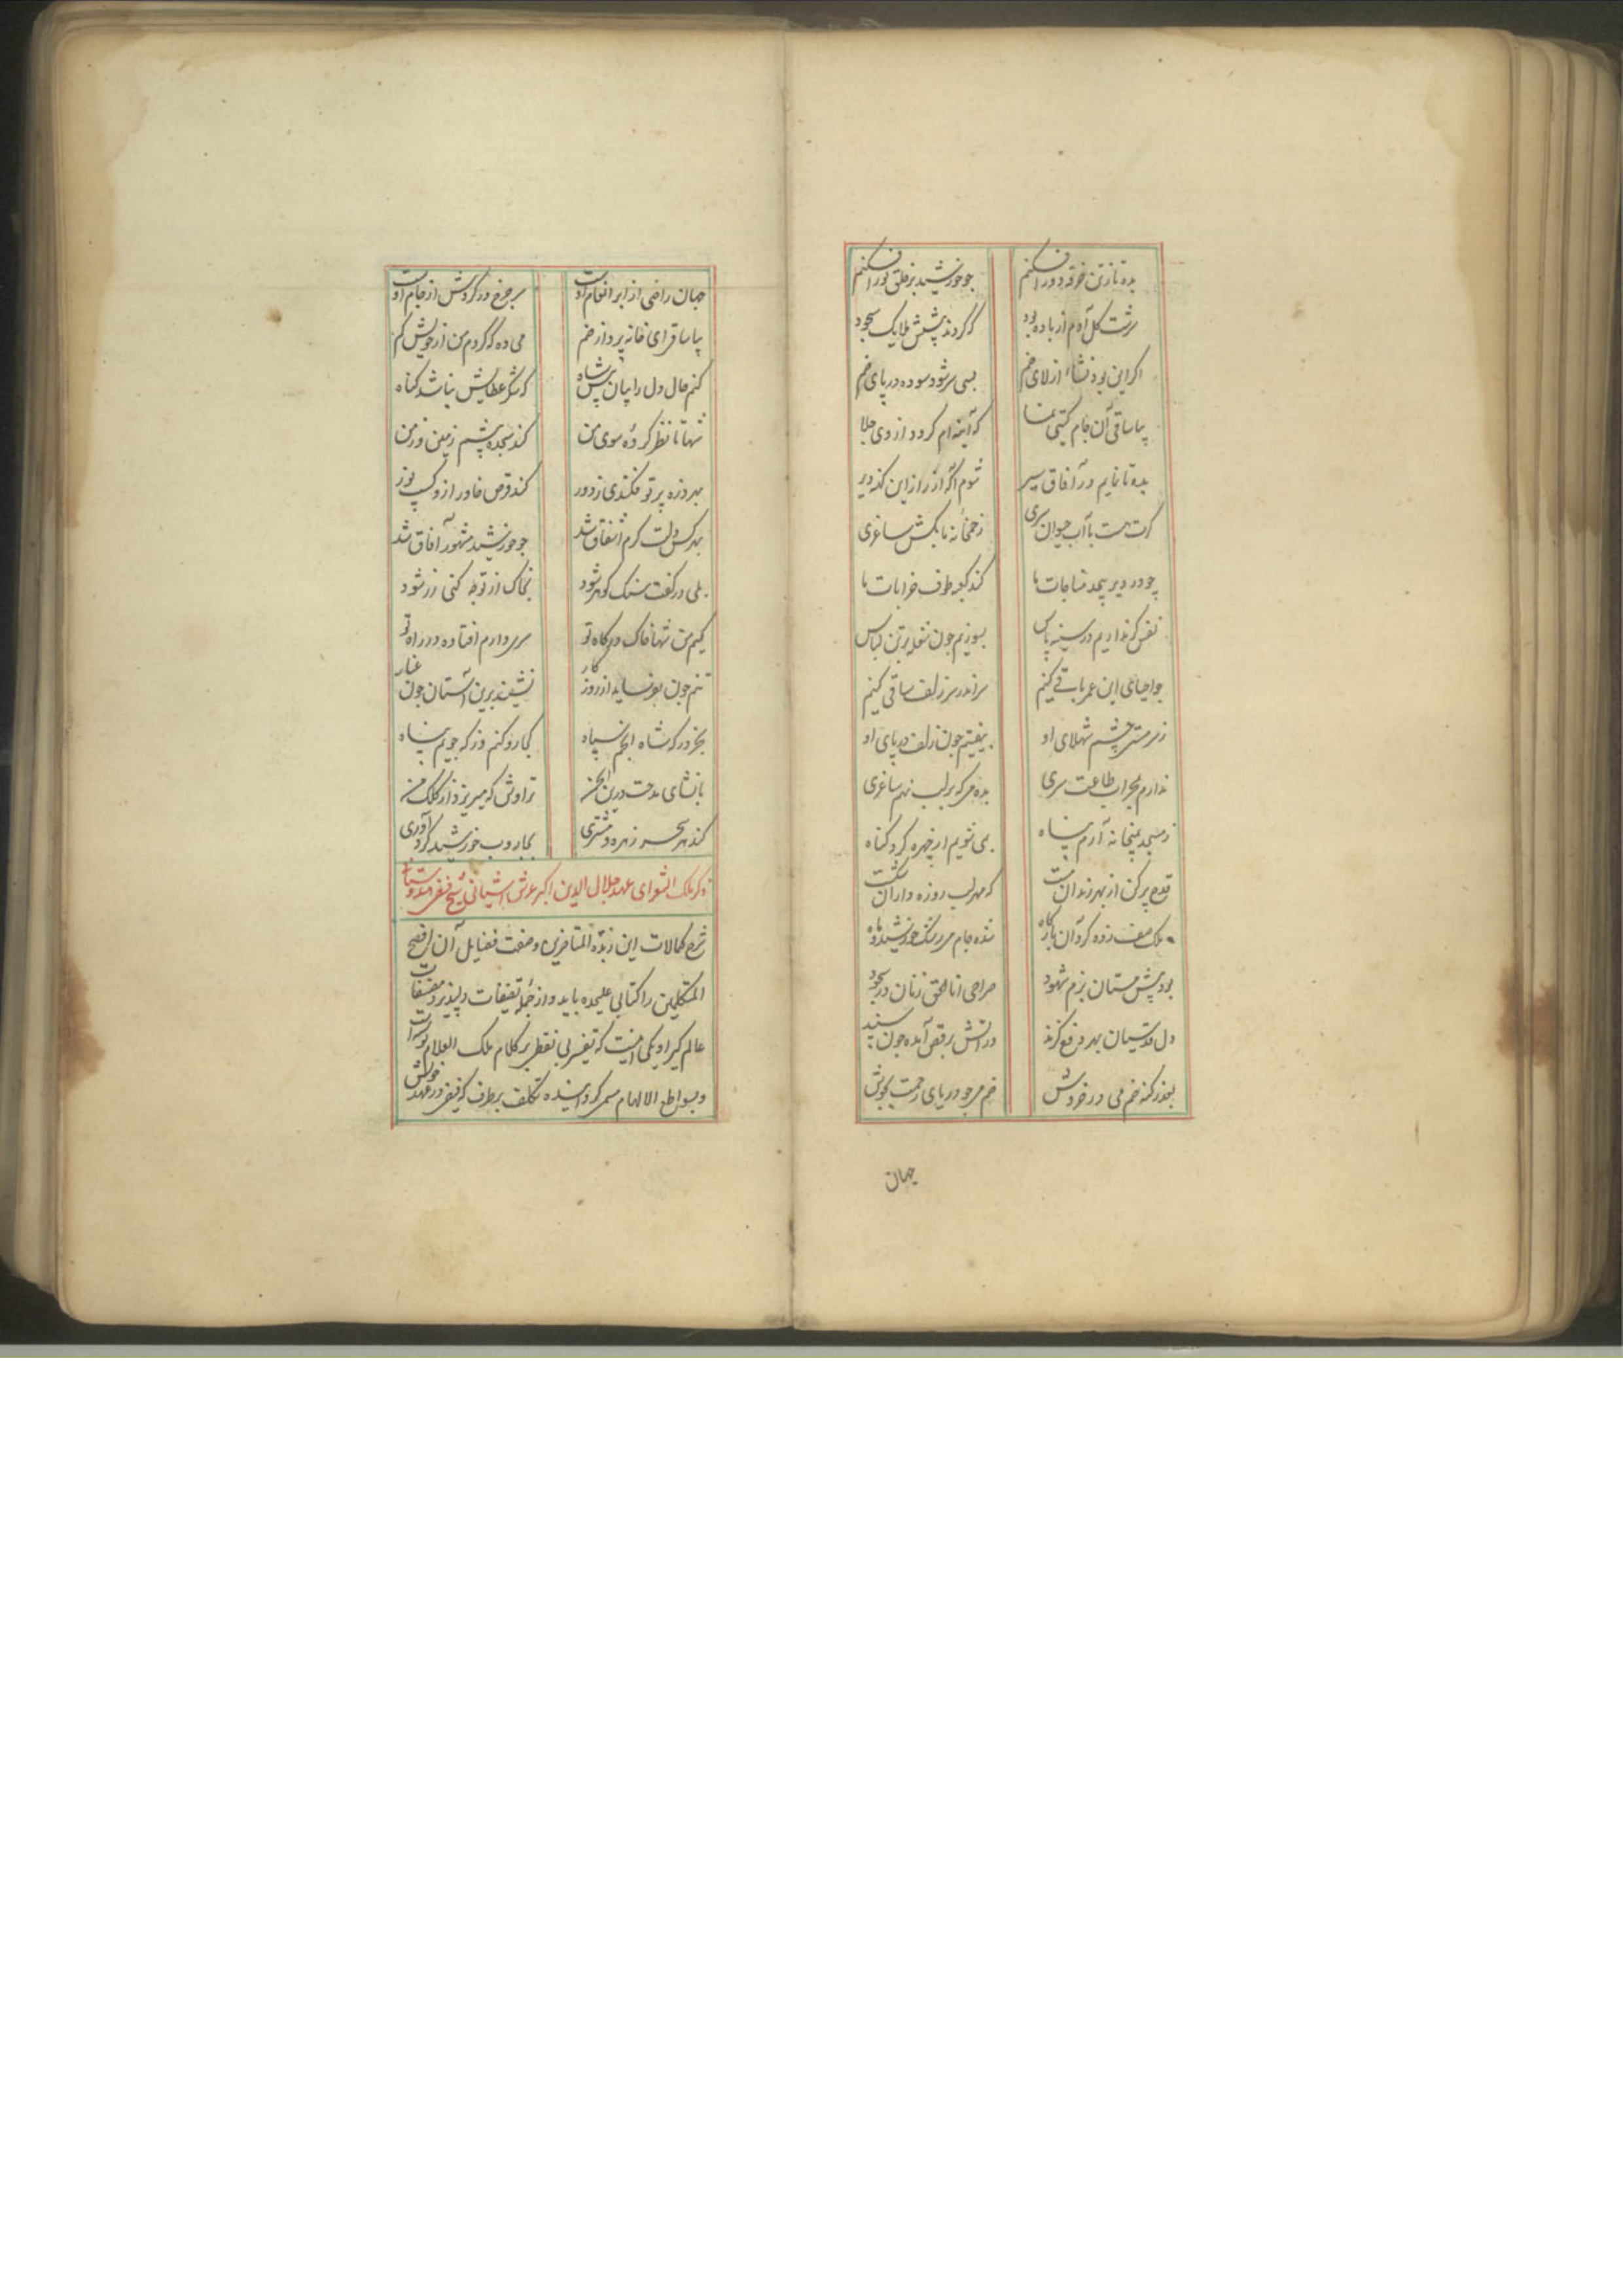 بده تا ز تن خرقه دور افکنم چو خورشید بر خلق نور افکنم
سرشت گل آدم از باده بود که کردند پیشش ملایک سجود
اگر این بود نشاء از لای خم بسی سر شود سوده در پای خم
بیا ساقی آن جام گیتی نما که آینه ام گردد از وی جلا
بده تا نمایم در آفاق سیر شوم آگه از راز این کهنه دیر
گرت هست با آب حیوان سری ز خمخانه ما بکش ساغری
چو در دیر پیچد مناجات ما کند کعبه طوف خرابات ما
نفس گر نداریم در سینه پاس بسوزیم چون شعله بر تن لباس
چو احیای این عمر باقی کنیم سر اندر سر زلف ساقی کنیم
ز سرمستی چشم شهلای او بیفتیم چون زلف در پای او
ندارم بمحراب طاعت سری بده می که بر لب نهم ساغری
ز مسجد بمیخانه آرم پناه بمی شویم از چهره گرد گناه
قدح پر کن از بهر رندان مست که مهر لب روزه داران شکست
ملک صف زده گرد آن بارگاه شده جام می رشک خورشید و ماه
بود پیش مستان بزم شهود صراحی انا الحق زنان در سجود
دل قدسیان بهر دفع گزند در آتش برقص آمده چون سپند
بعذر گنه خم می در خروش خم می چو دریای رحمت بجوش
جهان
جهان راضی از ابر انعام اوست سر چرخ در گردش از جام اوست
بیا ساقی ای خانه پرداز خم می ده که گردم من از خویش گم
کنم حال دل را بیان پیش شاه که شکر عطایش نباشد گناه
شها تا نظر کرده سوی من کند سجده پیشم زمین و زمن
بهر ذره پرتو فکندی ز دور کند قرص خاور ازو کسب نور
بهر کس دلت کرم اشفاق شد چو خورشید مشهور آفاق شد
بلی در کفت سنگ گوهر شود بخاک ار توجه کنی زر شود
کیم من شها خاک درگاه تو سری دارم افتاده در راه تو
تنم چون بفرساید از روزگار نشیند برین آستان چون غبار
بجز درگه شاه انجم سپاه کجا رو کنم وز که جویم پناه
بانشای مدحت درین انجمن تراوش که میریزد از کلک من
کند هر سحر زهره و مشتری بجاروب خورشید گرد آوری
ذکر ملک الشعرای عهد جلال الدین اکبر عرش آشیانی شیخ فیضی هندوستان
شرح کمالات این زبدة المتاخرین و صفت فضایل آن افصح
المتکلمین را کتابی علیحده باید و از جمله تصنیفات دلپذیر و مصنفات
عالم گیر او یکی اینست که تفسیر بی نقطه بر کلام ملک العلام نوشته است
و بسواطع الالهام مسمی گردانیده تکلف برطرف که فیضی در عهد خویش